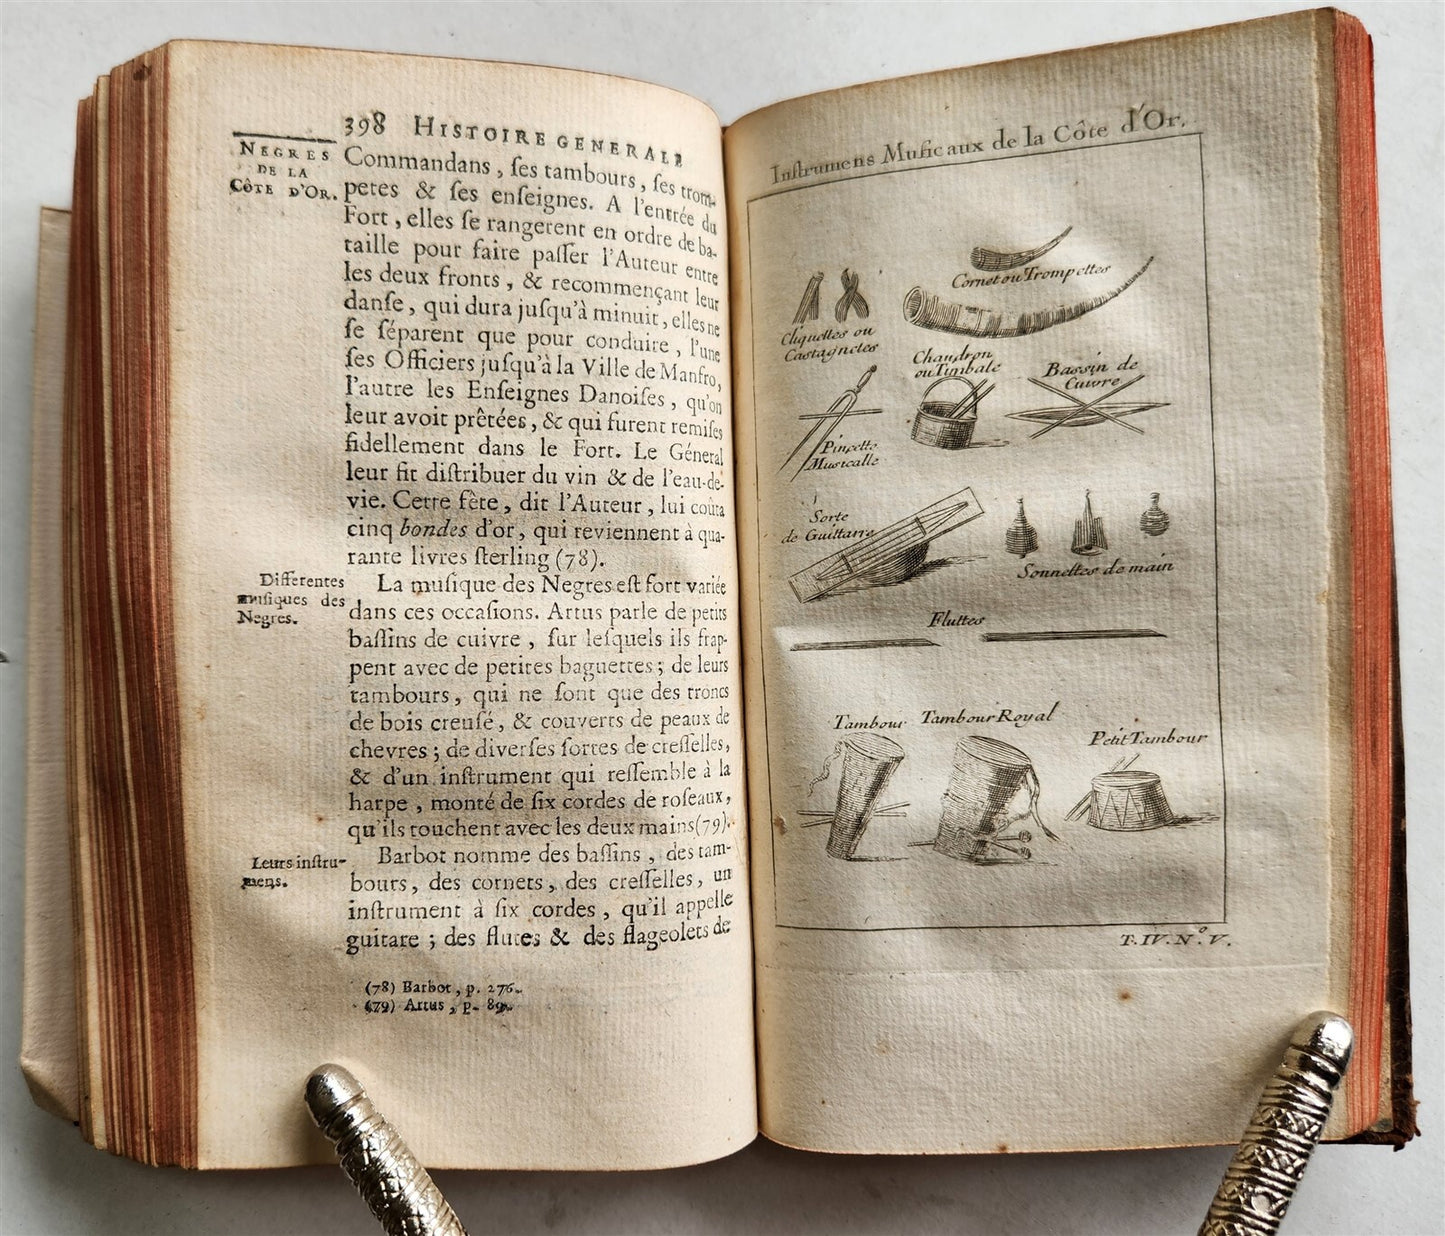 398 HISTOIRE GENERALE
NEGRES
DE LA
CÔTE D'OR.
Commandans, ſes tambours, ſes trom-
petes & ſes enſeignes. A l'entrée du
Fort, elles ſe rangerent en ordre de ba-
taille pour faire paſſer l'Auteur entre
les deux fronts, & recommençant leur
danſe, qui dura juſqu'à minuit, elles ne
ſe ſéparent que pour conduire, l'une
ſes Officiers juſqu'à la Ville de Manfro,
l'autre les Enſeignes Danoiſes, qu'on
leur avoit prêtées, & qui furent remiſes
fidellement dans le Fort. Le Général
leur fit diſtribuer du vin & de l'eau-de-
vie. Cette fête, dit l'Auteur, lui coûta
cinq bondes d'or, qui reviennent à qua-
rante livres ſterling (78).
Differentes
muſiques des
Negres.
La muſique des Negres eſt fort variée
dans ces occaſions. Artus parle de petits
baſſins de cuivre, ſur leſquels ils frap-
pent avec de petites baguettes; de leurs
tambours, qui ne ſont que des troncs
de bois creuſé, & couverts de peaux de
chevres; de diverſes ſortes de creſſelles,
& d'un inſtrument qui reſſemble à la
harpe, monté de ſix cordes de roſeaux,
qu'ils touchent avec les deux mains (79).
Leurs inſtru-
mens.
Barbot nomme des baſſins, des tam-
bours, des cornets, des creſſelles, un
inſtrument à ſix cordes, qu'il appelle
guitare; des flutes & des flageolets de
(78) Barbot, p. 276.
(79) Artus, p. 89.
Inſtrumens Muſicaux de la Côte d'Or.
Cornet ou Trompettes
Cliquettes ou
Castagnetes
Chaudron
ou Timbale
Bassin de
Cuivre
Pinçette
Musicalle
Sorte
de Guittarre
Sonnettes de main
Fluttes
Tambour
Tambour Royal
Petit Tambour
T. IV. N.º V.